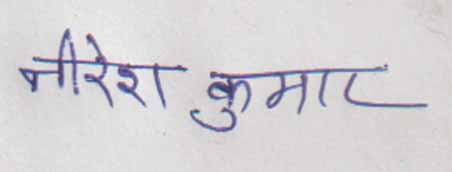 नीरेश कुमार